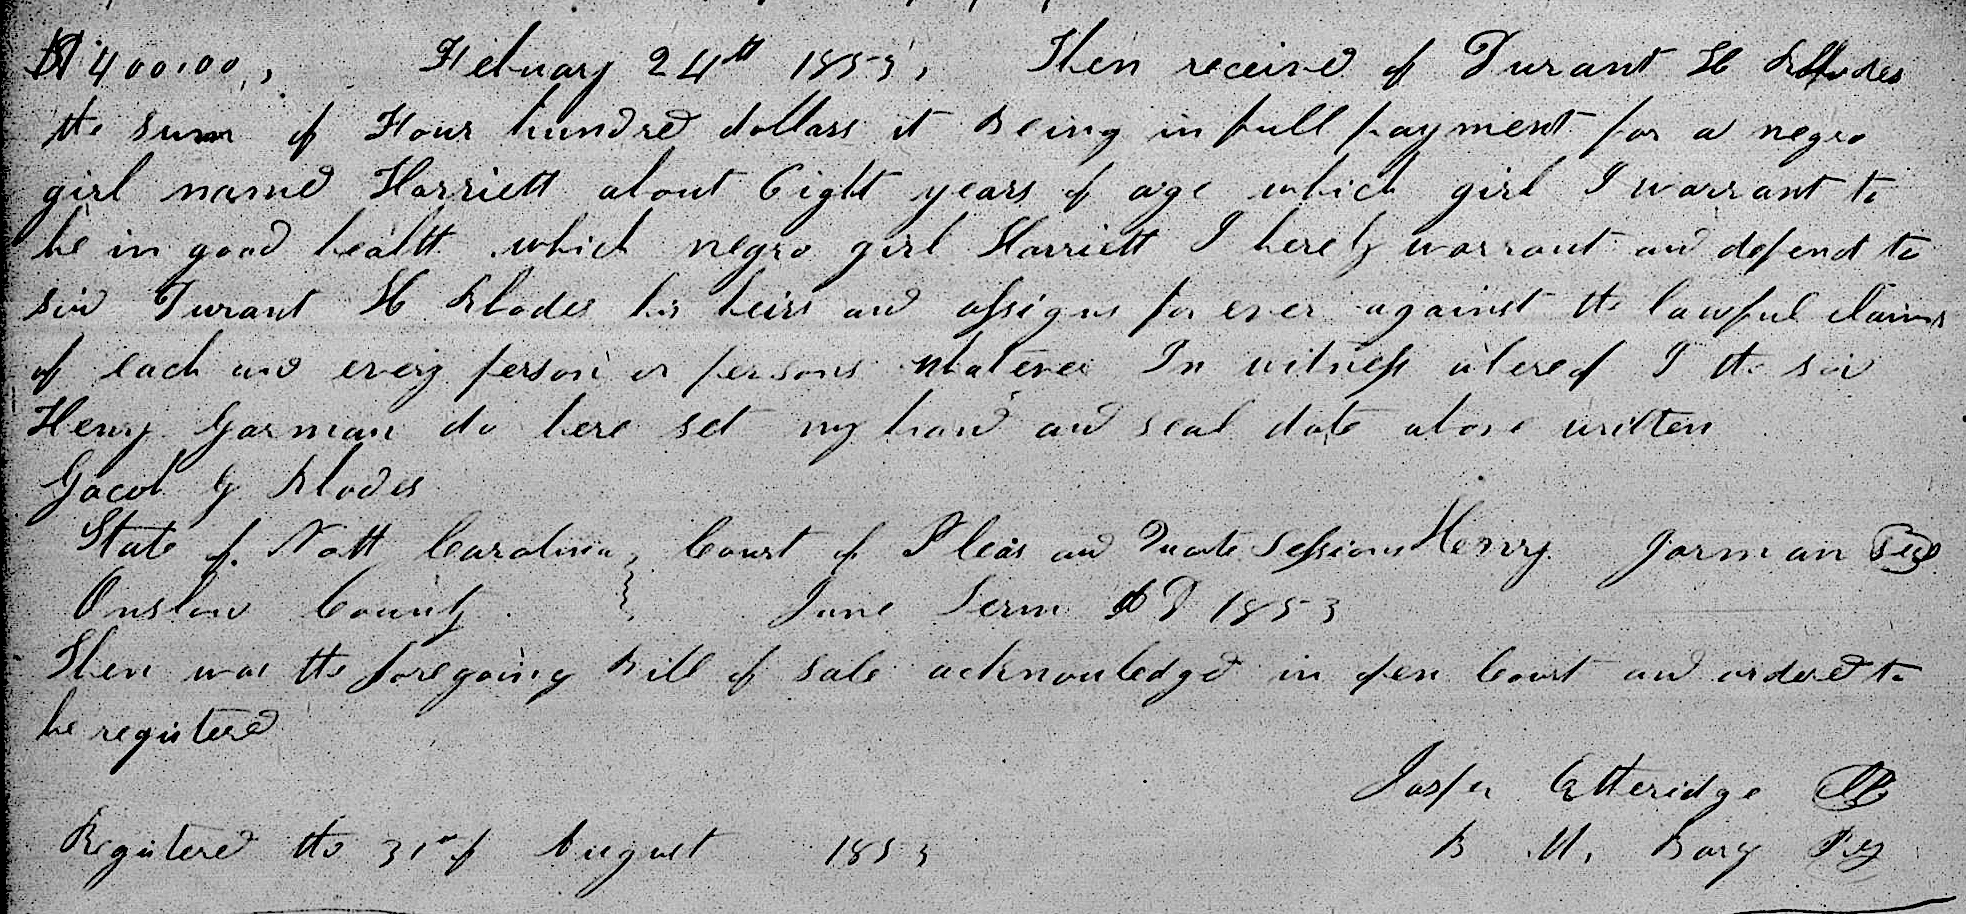 $400.00, February 24th 1853, Then receive of Durant H Rhodes
the sum of Four hundred dollars it Being in full payment for a negro
girl named Harriett about Eight years of age which girl I warrant to
be in good health which negro girl Harriett I hereby warrant and defend to
sid Durant H Rhodes his heirs and assigns for ever against the lawful claims
of each and every person or persons whatever In witness whereof I the sid
Henry Jarman do here set my hand and seal date above written
Jacob G Rhodes
State of North Carolina, Court of Pleas and Quarte Sessions Henry Jarman Seal
Onslow County } June Term AD 1853
Then was the foregoing Bill of sale acknowledgd in open Court and ordered to
be registered
Jasper Etheridge
Registered the 31st of August 1853 B M, Barry Reg